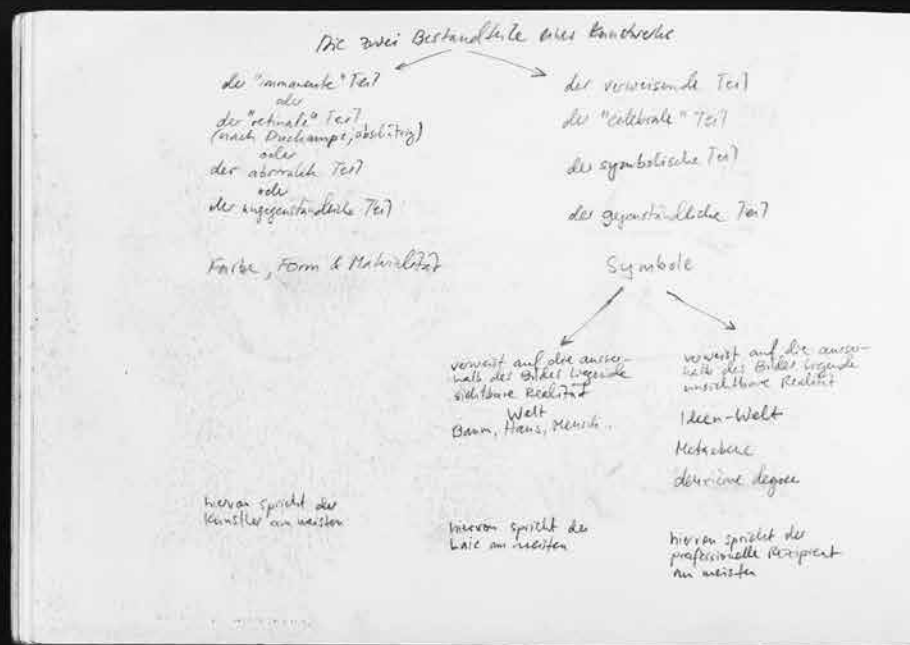 Die zwei Bestandteile eines Kunstwerks
der "immanente" Teil
oder
der "retinale" Teil
(nach Duchamps, abschätzig)
oder
der abstrakte Teil
oder
der ungegenständliche Teil
Farbe, Form & Materialität
hiervon spricht der
Künstler am meisten
der verweisende Teil
der "celebrale" Teil
der symbolische Teil
der gegenständliche Teil
Symbole
verweist auf die ausser-
halb des Bildes liegende
sichtbare Realität
Welt
Baum, Haus, Mensch.
hiervon spricht der
Laie am meisten
verweist auf die ausser-
halb des Bildes liegende
unsichtbare Realität
Ideen-Welt
Metaebene
deuxième degree
hiervon spricht der
professionelle Rezipient
am meisten